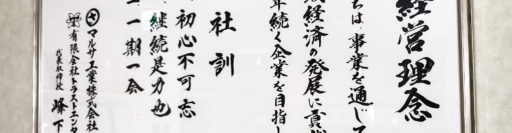 経営理念
ちは 事業を通じて
域経済の発展に貢献
年続く企業を目指し
社訓
初心不可忘
継続是力也
一期一会
マルサ工業株式会社
有限会社トラストエンタ
代表取締役 峰下